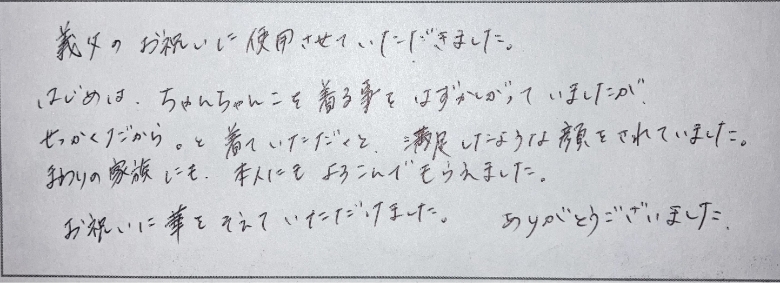 義父のお祝いに使用させていただきました。
はじめは、ちゃんちゃんこを着る事をはずかしがっていましたが、
せっかくだから。と着ていただくと、満足したような顔をされていました。
まわりの家族にも、本人にもよろこんでもらえました。
お祝いに華をそえていただけました。 ありがとうございました。